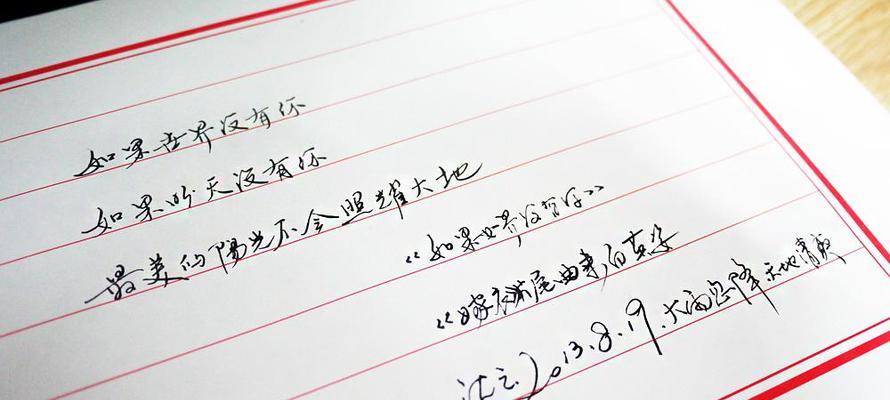 如果世界没有你
如果昨天没有你
最美的陽光不会照耀大地
《如果世界没有你》
尾曲
2013.8.19.大雨忽降天地清爽